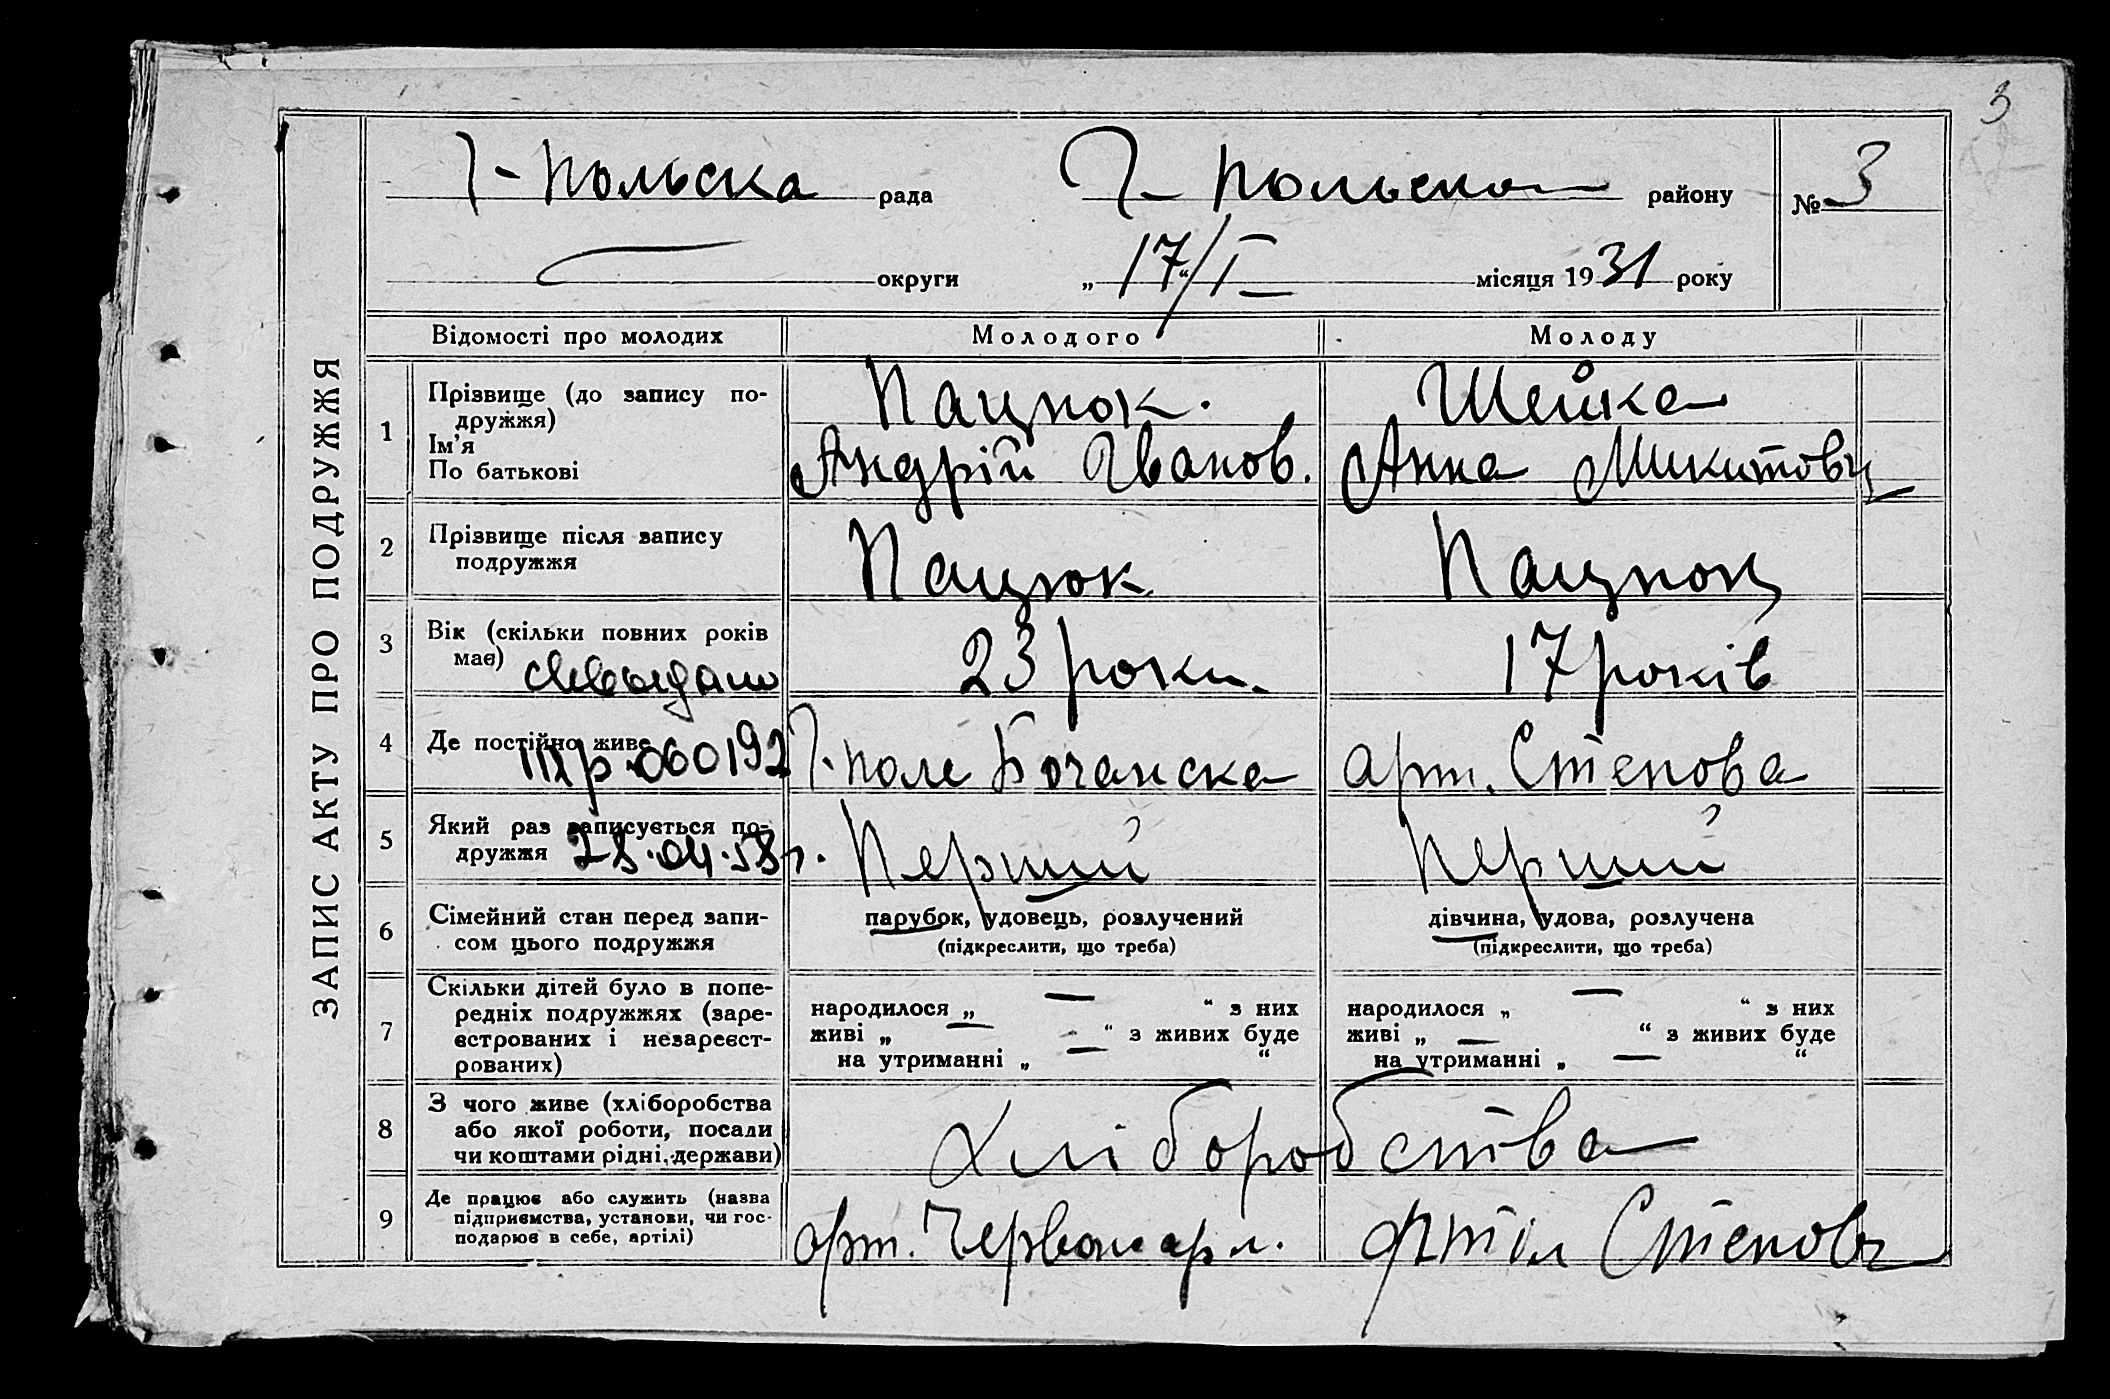 3
Г-Польска рада Г-Польського району № 3
округи „17/I“ місяця 1931 року
ЗАПИС АКТУ ПРО ПОДРУЖЖЯ
Відомості про молодих Молодого Молоду
1 Прізвище (до запису по-
дружжя)
Ім’я
По батькові
Пацюк.
Андрій Іванов.
Шейка
Анна Микитовн
2 Прізвище після запису
подружжя
Пацюк
Пацюк
3 Вік (скільки повних років
має)
23 роки.
17 років
4 Де постійно живе
060192
Г. поле
арт. Степова
5 Який раз записується по-
дружжя
28.04.58 г.
Перший
Перший
6 Сімейний стан перед запи-
сом цього подружжя
парубок, удовець, розлучений
(підкреслити, що треба)
дівчина, удова, розлучена
(підкреслити, що треба)
7 Скільки дітей було в попе-
редніх подружжях (заре-
єстрованих і незареєст-
рованих)
народилося „ — “ з них
живі „ — “ з живих буде
на утриманні „ — “
народилося „ — “ з них
живі „ — “ з живих буде
на утриманні „ — “
8 З чого живе (хліборобства
або якої роботи, посади
чи коштами рідні, держави)
Хліборобства
9 Де працює або служить (назва
підприємства, установи, чи гос-
подарює в себе, артілі)
арт.
Артіл Степова